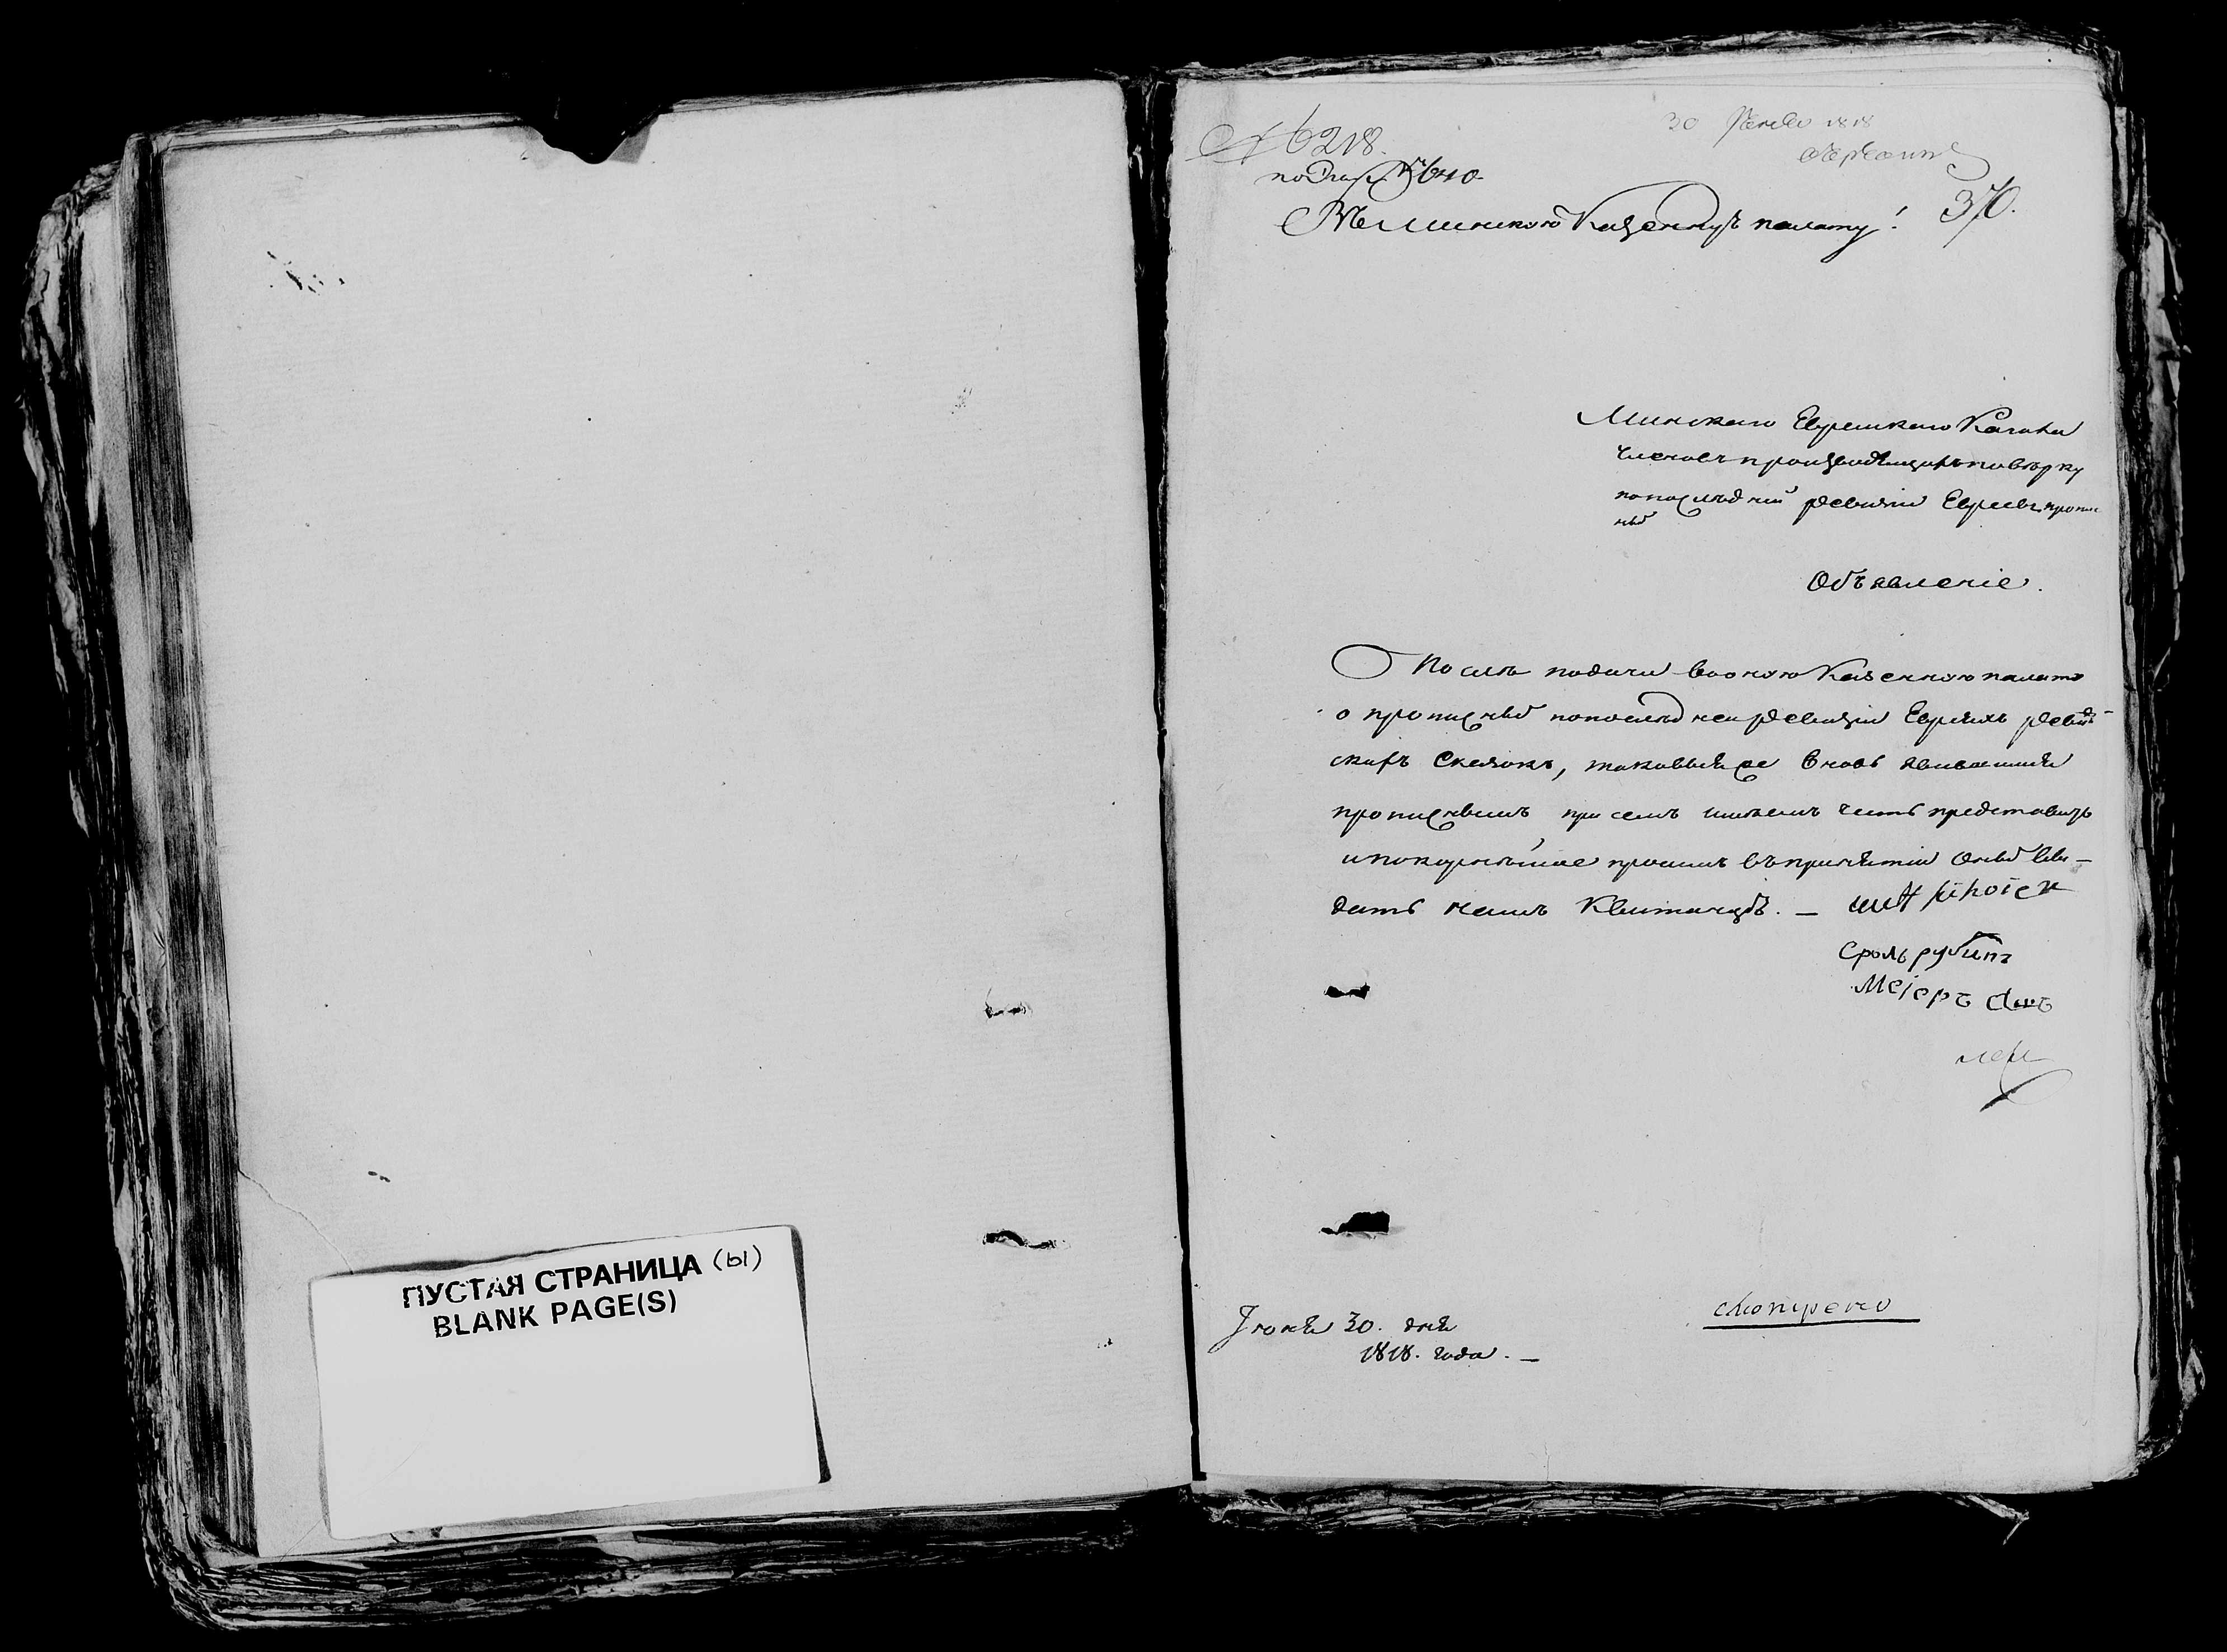 ПУСТАЯ СТРАНИЦА (ы)
BLANK PAGE(S)
№ 6218.
30 1818
370.
Въ Минскою Казенную палату!
Минскаго Еврейскаго Кагала
Членовъ производящихъ повѣрку
по послѣдней ревизіи Евреевъ пропис
ныхъ
Объявленіе.
Послѣ подачи во оную Казенную палату
о прописныхъ по послѣдней ревизіи Евреяхъ ревиз-
скихъ Сказокъ, таковыя же вновь явившимся
прописнымъ при семъ имѣемъ честь представить
и покорнѣйше просимъ въ принятіи оныхъ вы-
дать намъ Квитанцію. —
Сроль рубинъ
Меіеръ
смотрено
Іюня 30. дня
1818. года. —